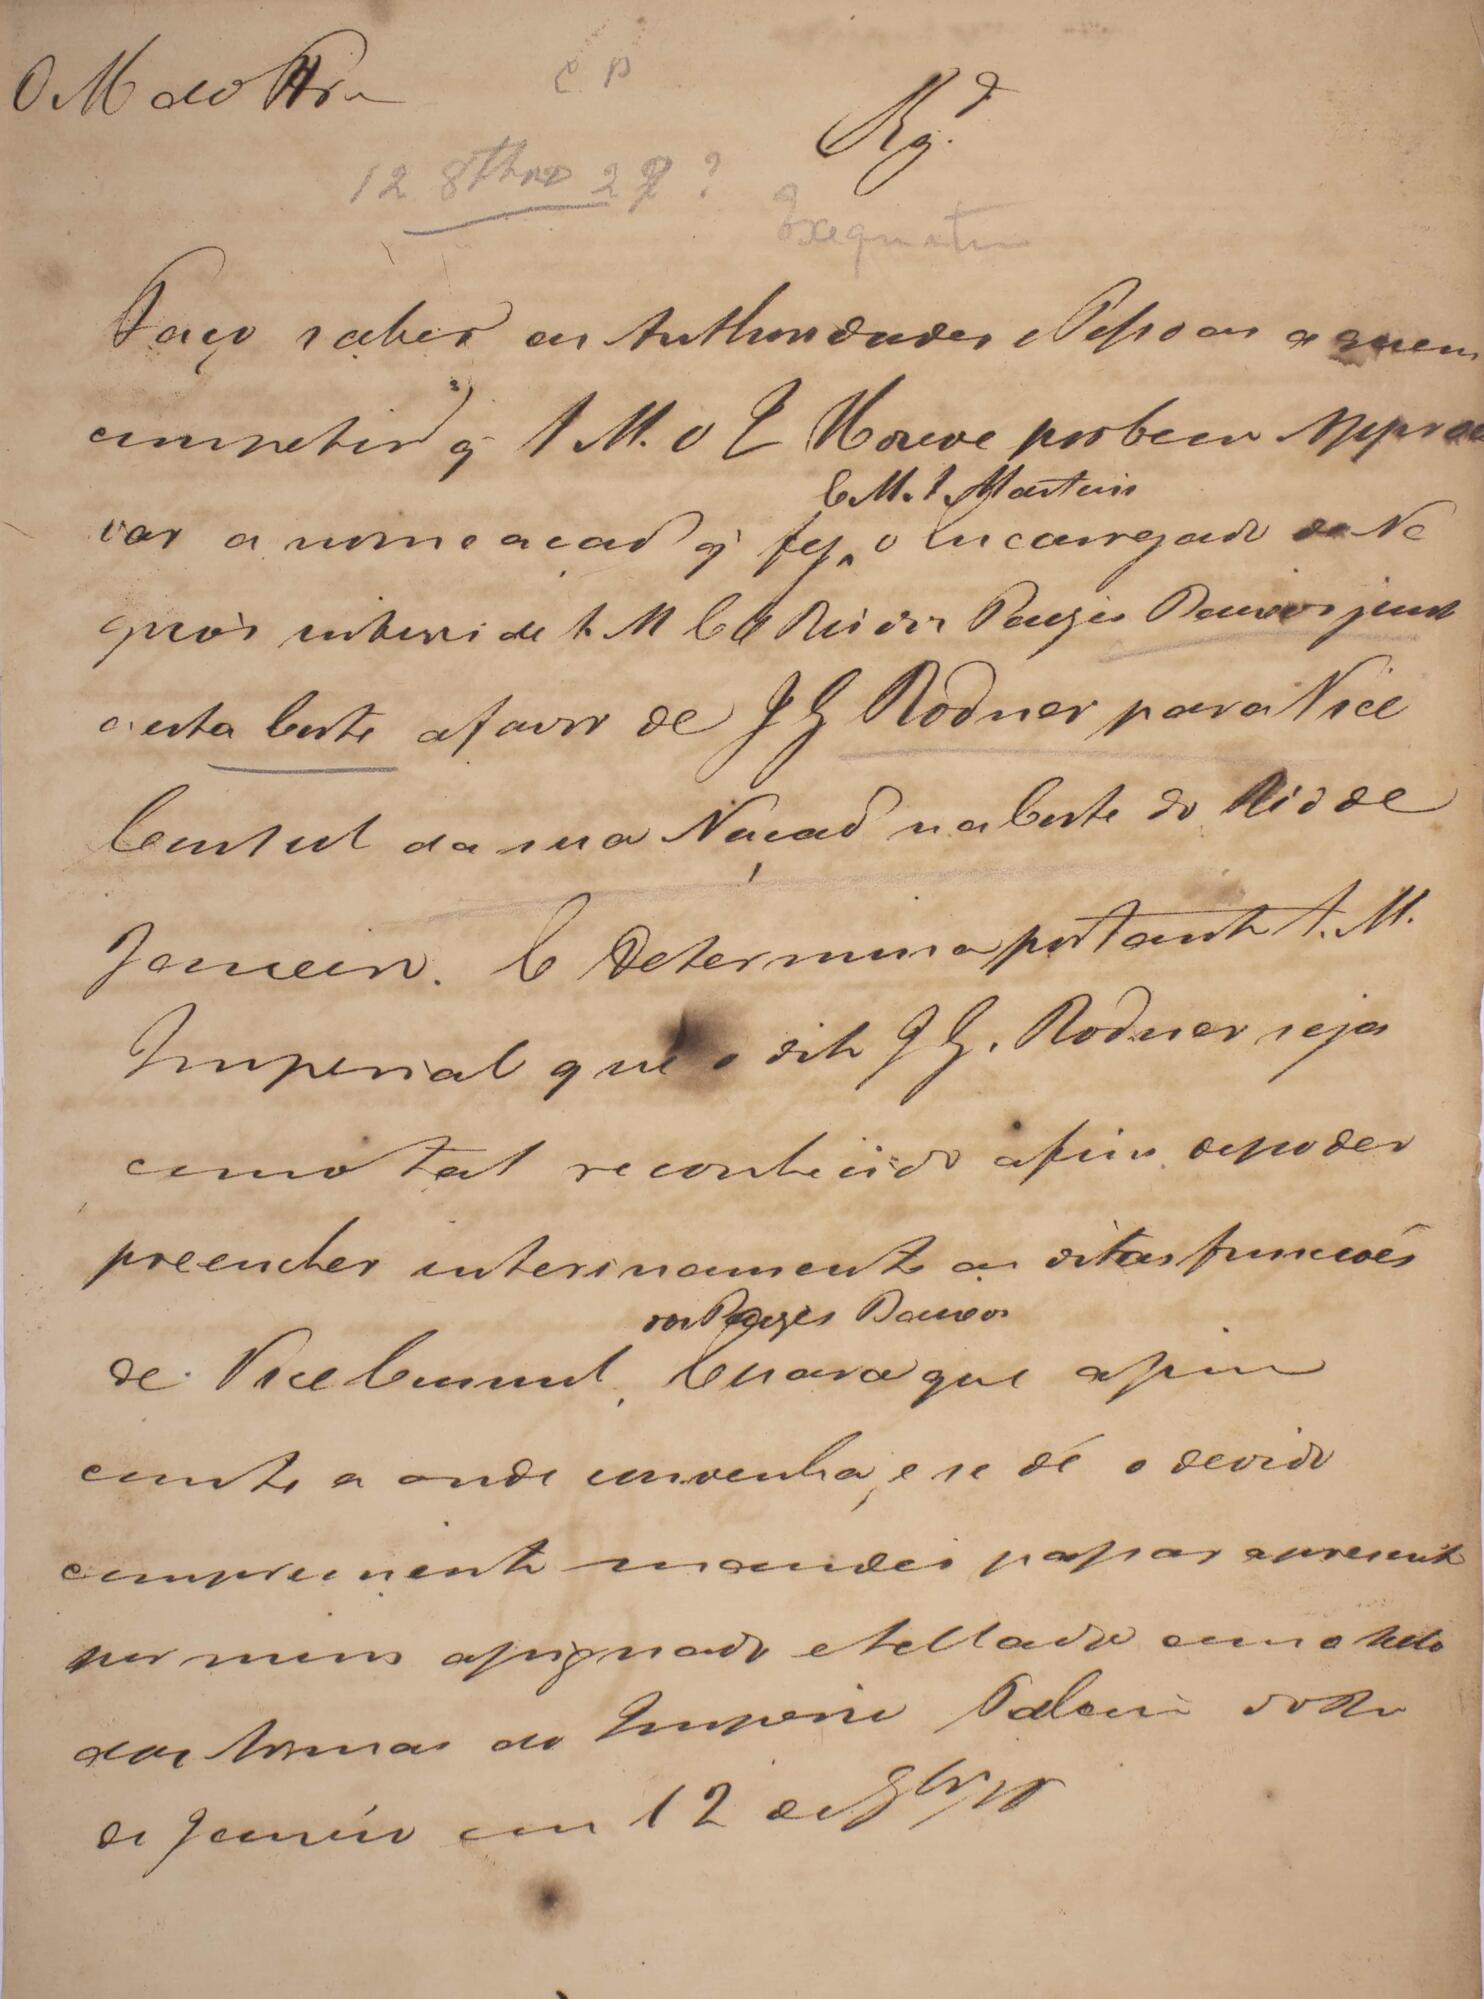 C P
Rg.d
12 8tbro 27?
Exequatur
Faço saber as Authoridades e Pessoas a quem
competir q S. M. O I Houve por bem Appro
var a nomeaçaõ q̃ fez o Encarregado de Ne
C. M. S. Martins
gocios interi de S. M. El Rei dos Paizes Baixos junto
a esta Corte a favor de J G Rodner para Vice
Consul da sua Naçaõ na Corte do Rio de
Janeiro. E Determina portanto S. M.
Imperial que o dito J G. Rodner seja
como tal reconhecido afim de poder
preencher interinamente as ditas funcções
dos Paizes Baixos
de Vice Consul, E para que assim
conste a onde convenha, e se dê o devido
comprimento mandei passar a presente
por mim assignado e sellado com o sello
das Armas do Imperio Palacio do Rio
de Janeiro em 12 de